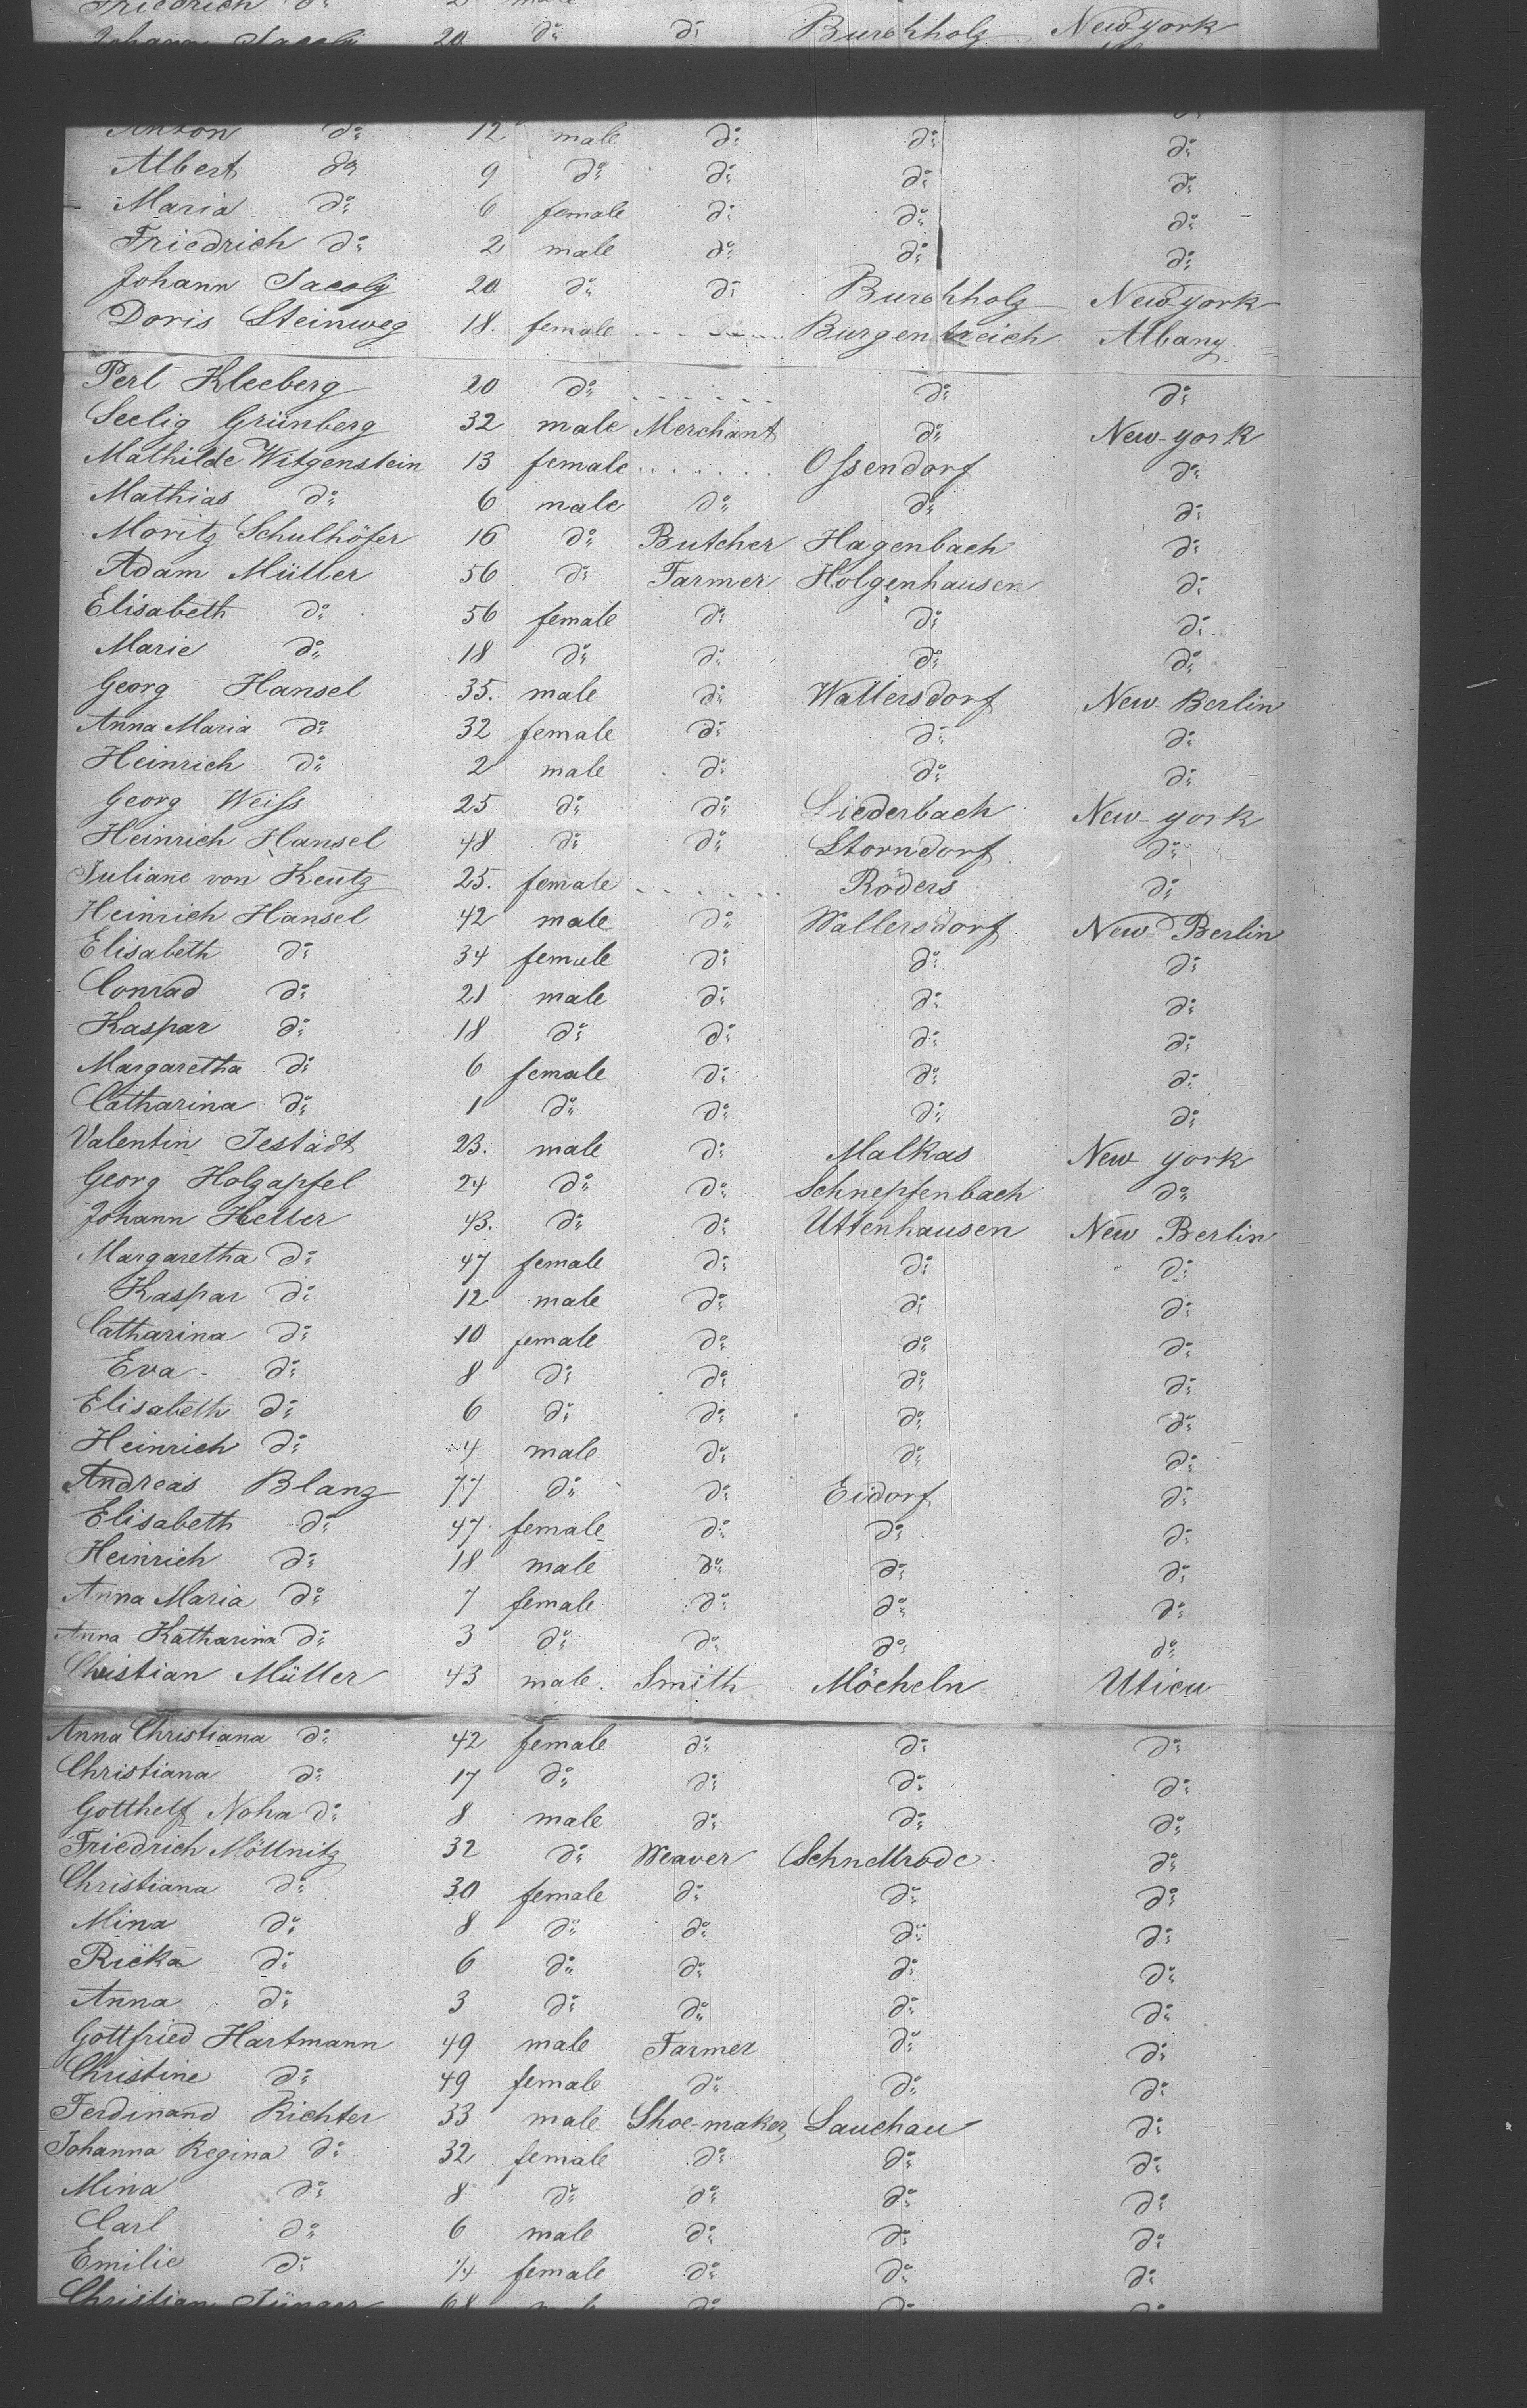 Friedrich do
Johann Jacoby 20 do do Burchholz New york
Anton do 12 male do do do
Albert do 9 do do do do
Maria do 6 female do do do
Friedrich do 2 male do do do
Johann Jacoby 20 do do Burchholz New york
Doris Steinweg 18. female Burgentreich Albany
Perl Kleeberg 20 do do do
Seelig Grünberg 32 male Merchant do New-york
Mathilde Witgenstein 13 female Ossendorf do
Mathias do 6 male do do do
Moritz Schulhöfer 16 do Butcher Hagenbach do
Adam Müller 56 do Farmer Holgenhausen do
Elisabeth do 56 female do do do
Marie do 18 do do do do
Georg Hansel 35. male do Wallersdorf New-Berlin
Anna Maria do 32 female do do do
Heinrich do 2 male do do do
Georg Weiss 25 do do Liederbach New-york
Heinrich Hansel 48 do do Storndorf do
Juliane von Keutz 25. female Röders do
Heinrich Hansel 42 male do Wallersdorf New-Berlin
Elisabeth do 34 female do do do
Conrad do 21 male do do do
Kaspar do 18 do do do do
Margaretha do 6 female do do do
Catharina do 1 do do do do
Valentin Jestädt 23. male do Malkas New york
Georg Holzapfel 24 do do Schnepfenbach do
Johann Heller 43. do do Uttenhausen New Berlin
Margaretha do 47 female do do do
Kaspar do 12 male do do do
Catharina do 10 female do do do
Eva do 8 do do do do
Elisabeth do 6 do do do do
Heinrich do 4 male do do do
Andreas Blanz 77 do do Eidorf do
Elisabeth do 47 female do do do
Heinrich do 18 male do do do
Anna Maria do 7 female do do do
Anna Katharina do 3 do do do do
Christian Müller 43 male. Smith Möcheln Utica
Anna Christiana do 42 female do do do
Christiana do 17 do do do do
Gotthelf Noha do 8 male do do do
Friedrich Möllnitz 32 do Weaver Schnellrode do
Christiana do 30 female do do do
Mina do 8 do do do do
Ricka do 6 do do do do
Anna do 3 do do do do
Gottfried Hartmann 49 male Farmer do do
Christine do 49 female do do do
Ferdinand Richter 33 male Shoe-maker Lauchau do
Johanna Regina do 32 female do do do
Mina do 8 do do do do
Carl do 6 male do do do
Emilie do 1/4 female do do do
Christian 68 male do do do